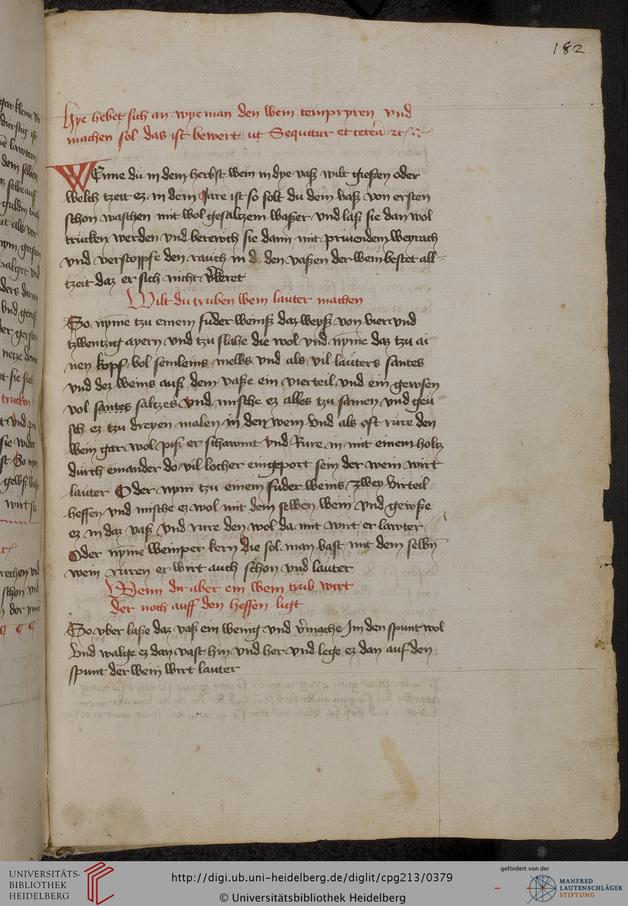 182
hye hebet sich an wye man den wein tempryren vnd
machen sol das ist bewert ut Sequitur et cetera
Wenne du in dem herbst wein in dye vaß wilt giessen oder
welch tzeit ez in dem Jare ist so solt du dem vaß von ersten
schon waschen mit wol gesaltzem waßer vnd laß sie dan wol
trucken werden vnd bereich sie dann mit weyrach
vnd verstopffe den rauch in den vaßen der wein bestet all
tzeit daz er sich nicht verkeret
Wilt du truben wein lauter machen
So nyme tzu einem fuder weinß daz weyß von vier vnd
tzwentzig ayern vnd tzu slahe die wol vnd nyme daz tzu ai
nen kopf vol semleins melbs vnd als vil lauters santes
vnd dez weins auß dem vaße ein vierteil vnd ein gewsen
vol santes saltzes vnd mische ez alles tzu samen vnd geu
sch ez tzu dreyen malen in den wein vnd als oft rure den
wein gar wol piß er schawmt vnd Rure in mit einem holtz
durch einander do vil locher eingeport sein der wein wirt
lauter Oder nym tzu einem fuder weins zwey virteil
heffen vnd mische ez wol mit dem selben wein vnd gewße
ez in daz vaß vnd rure den wol da mit wirt er lawter
Oder nyme weinper kern die sol man vast mit dem selbn
wein ruren er wirt auch schon vnd lauter
Wenn dir aber ein wein trub wirt
der noch auff den heffen ligt
So vber laße daz vaß ein wenig vnd vermache Im den spunt wol
vnd walge ez dan vast hin vnd her vnd lege ez dan auf den
spunt der wein wirt lauter
UNIVERSITÄTS-
BIBLIOTHEK
HEIDELBERG
http://digi.ub.uni-heidelberg.de/diglit/cpg213/0379
© Universitätsbibliothek Heidelberg
gefördert von der
MANFRED
LAUTENSCHLÄGER
STIFTUNG